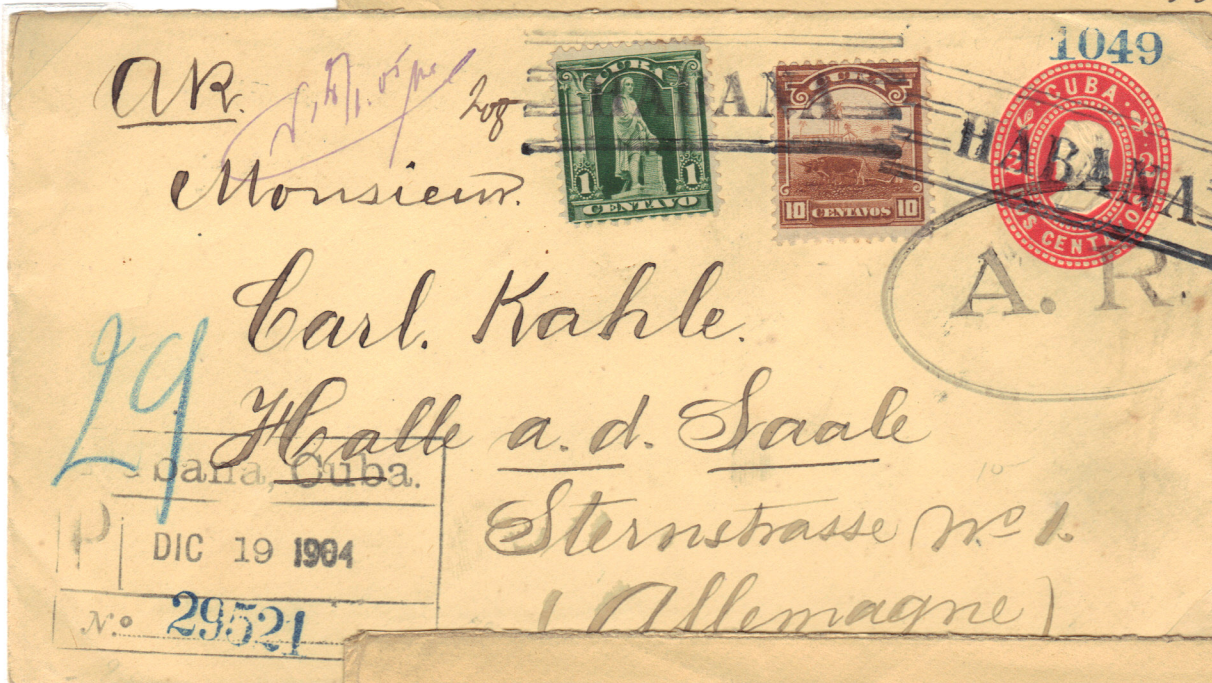 1049
AR.
CUBA
1 1
CENTAVO
HABANA
CUBA
10 CENTAVOS 10
HABANA
CUBA
2 2
DOS CENTAVOS
A. R.
Monsieur.
Carl. Kahle.
Halle a. d. Saale
Sternstrasse No 1.
(Allemagne)
29
bana, Cuba.
P
DIC 19 1904
N.o 29521